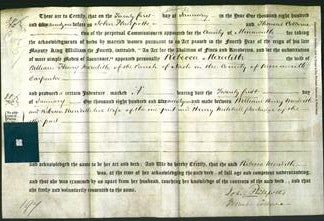 These are to Certify, that on the Twenty first day of January in the Year One thousand eight hundred
and before us John Philpotts and Thomas
two of the perpetual Commissioners appointed for the County of Monmouth for
taking the acknowledgments of deeds by married women pursuant to an Act passed in the Fourth Year of the reign of his late
Majesty King William the Fourth, intituled, "An Act for the Abolition of Fines and Recoveries, and for the substitution
of more simple Modes of Assurance," appeared personally Rebecca Meredith the wife of
William Henry Meredith of the Parish of in the County of Monmouth
Carpenter
and produced a certain Indenture marked A bearing date the Twenty first day
of January One thousand eight hundred and made between William Henry Meredith
and Rebecca Meredith his wife of the one part and Henry Mitchell of
the other part
and acknowledged the same to be her act and deed: And We do hereby Certify, that the said Rebecca Meredith
was, at the time of her acknowledging the said deed, of full age and competent understanding,
and that she was examined by us apart from her husband, touching her knowledge of the contents of the said deed, and that
she freely and voluntarily consented to the same.
John Philpotts
Thomas